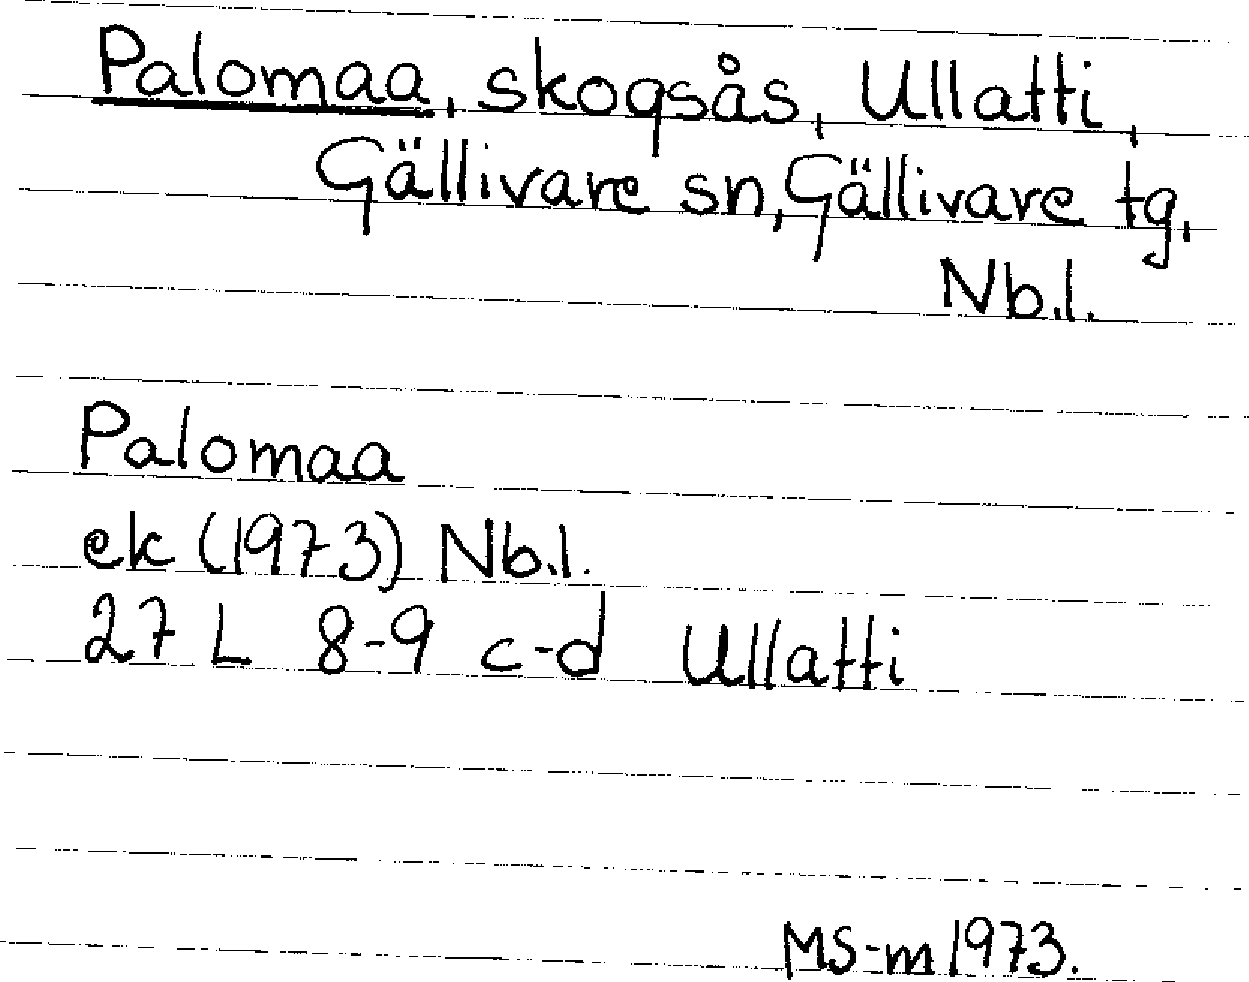 Palomaa, skogsås, Ullatti,
Gällivare sn, Gällivare tg,
Nb.l.
Palomaa
ek (1973) Nb.l.
27 L 8-9 c-d Ullatti
MS-m 1973.